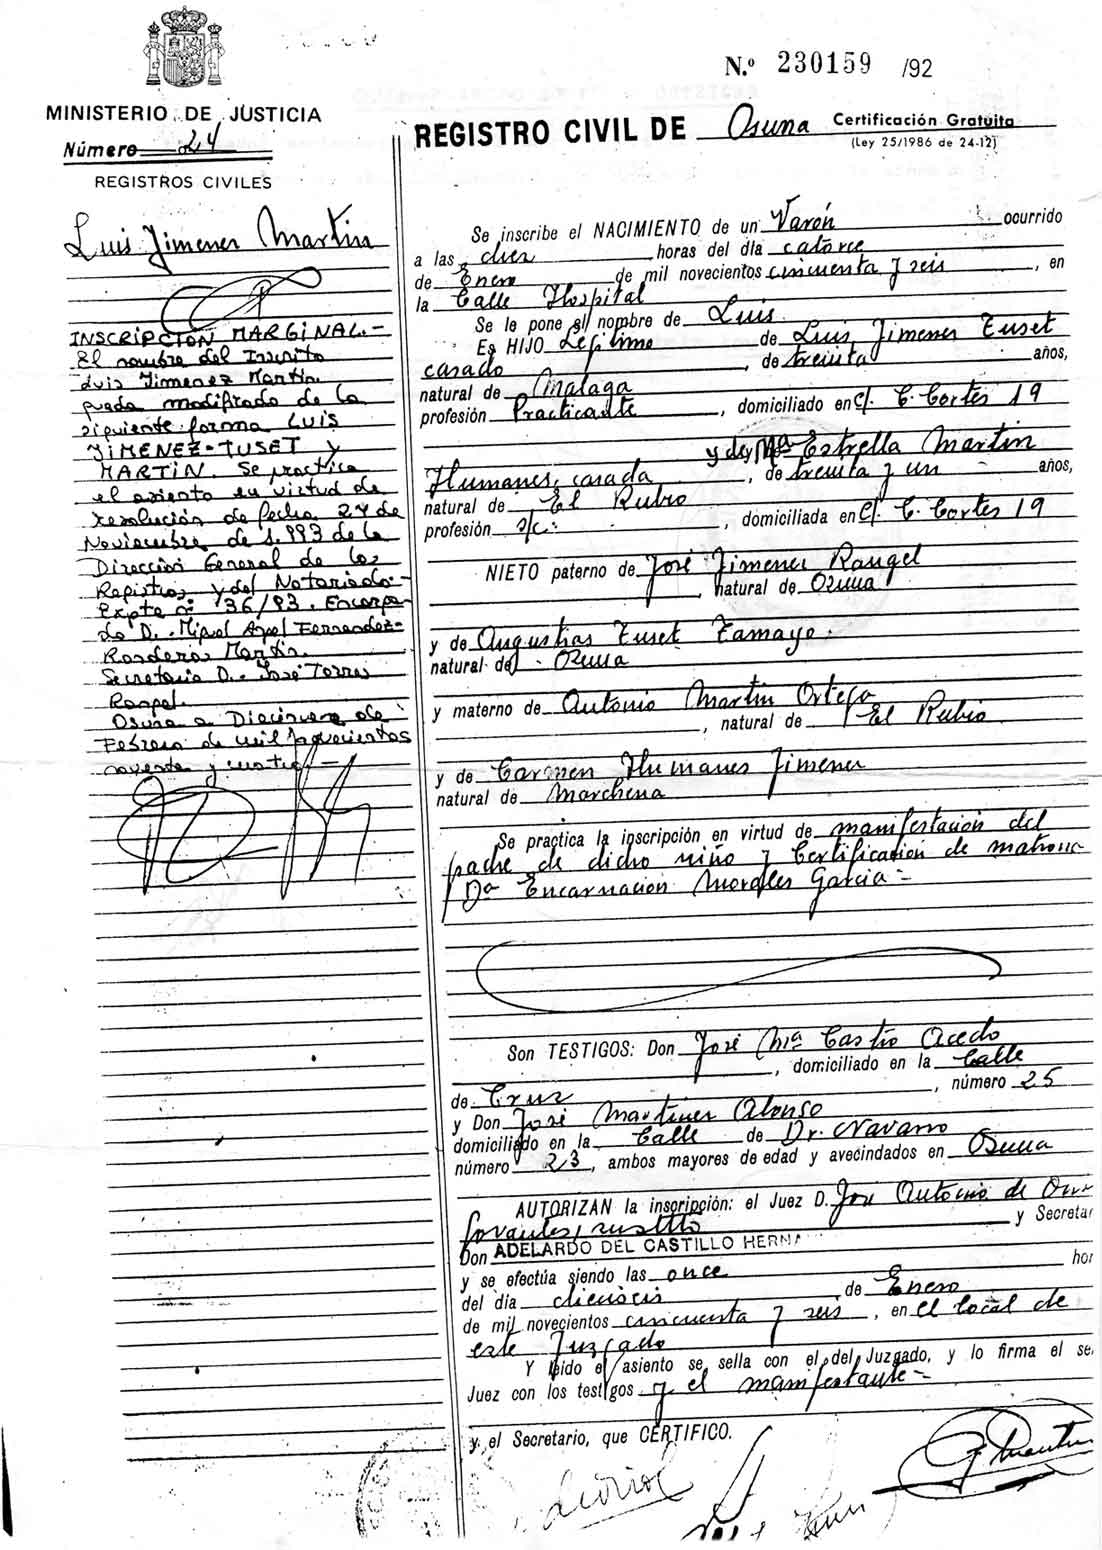 N.º 230159 /92
MINISTERIO DE JUSTICIA
Número 24
REGISTROS CIVILES
REGISTRO CIVIL DE Osuna Certificación Gratuita
(Ley 25/1986 de 24-12)
Luis Jimenez Martin
INSCRIPCION MARGINAL.-
El nombre del Inscrito
Luis Jimenez Martin
queda modificado de la
siguiente forma LUIS
JIMENEZ-TUSET y
MARTIN. Se practica
el asiento en virtud de
resolución de fecha 24 de
Noviembre de 1.993 de la
Dirección General de los
Registros y del Notariado-
Expte nº 36/93. Encarga-
do D. Miguel Angel Fernandez-
Ronderos Martin.
Secretario D. José Torres
Rangel.
Osuna a Diecinueve de
Febrero de mil novecientos
noventa y cuatro.-
Se inscribe el NACIMIENTO de un Varón ocurrido
a las diez horas del día catorce
de Enero de mil novecientos cincuenta y seis, en
la Calle Hospital
Se le pone el nombre de Luis
Es HIJO Legítimo de Luis Jimenez Tuset
casado, de treinta años,
natural de Malaga
profesión Practicante, domiciliado en c/. C. Cortés 19
y de Mª Estrella Martin
Humanes, casada, de treinta y un años,
natural de El Rubio
profesión s/c:, domiciliada en c/. C. Cortés 19
NIETO paterno de José Jimenez Rangel
, natural de Osuna
y de Augustias Tuset Tamayo.
natural de Osuna
y materno de Antonio Martin Ortega
, natural de El Rubio
y de Carmen Humanes Jimenez
natural de Marchena
Se practica la inscripción en virtud de manifestación del
padre de dicho niño y Certificación de matrona
Dª Encarnación Morales Garcia =
Son TESTIGOS: Don José Mª Castro Acedo
, domiciliado en la Calle
de Cruz, número 25
y Don José Martinez Alonso
domiciliado en la Calle de Dr. Navarro
número 23, ambos mayores de edad y avecindados en Osuna
AUTORIZAN la inscripción: el Juez D. José Antonio de
y Secretar
Don ADELARDO DEL CASTILLO HERNA
y se efectúa siendo las once hor
del día dieciseis de Enero
de mil novecientos cincuenta y seis, en el local de
este Juzgado
Y leido el asiento se sella con el del Juzgado, y lo firma el se
Juez con los testigos y el manifestante =
y el Secretario, que CERTIFICO.